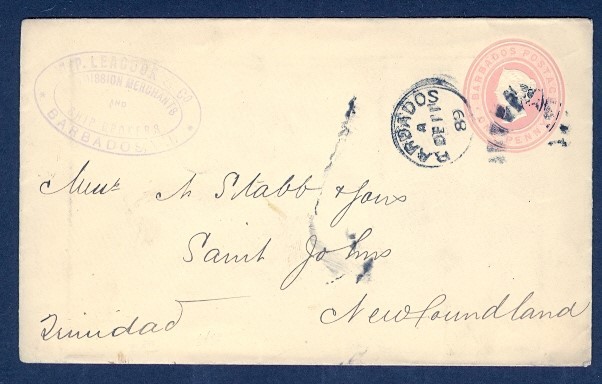 P. LEACOCK & CO
COMMISSION MERCHANTS
AND
BARBADOS
BARBADOS
A
DE 11
89
BARBADOS POSTAGE
PENNY
Messrs N Stabb & Sons
Saint Johns
Newfoundland
Trinidad